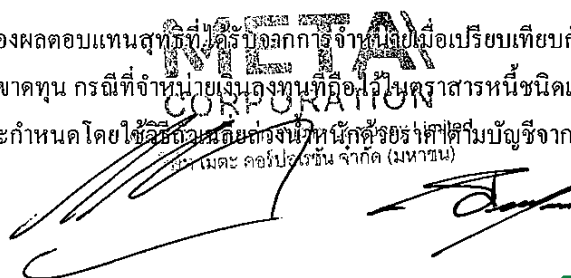 องผลตอบแทนสุทธิที่ได้รับจากการจำหน่ายเมื่อเปรียบเทียบกั
META
ขาดทุน กรณีที่จำหน่ายเงินลงทุนที่ถือไว้ในตราสารหนี้ชนิดเ
CORPORATION
ะกำหนดโดยใช้วิธีถัวเฉลี่ยถ่วงน้ำหนักด้วยราคาตามบัญชีจาก
Limited
บริษัท เมตะ คอร์ปอเรชั่น จำกัด (มหาชน)